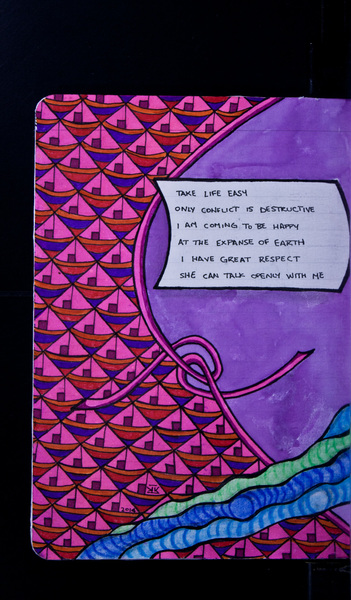 TAKE LIFE EASY
ONLY CONFLICT IS DESTRUCTIVE
I AM COMING TO BE HAPPY
AT THE EXPANSE OF EARTH
I HAVE GREAT RESPECT
SHE CAN TALK OPENLY WITH ME